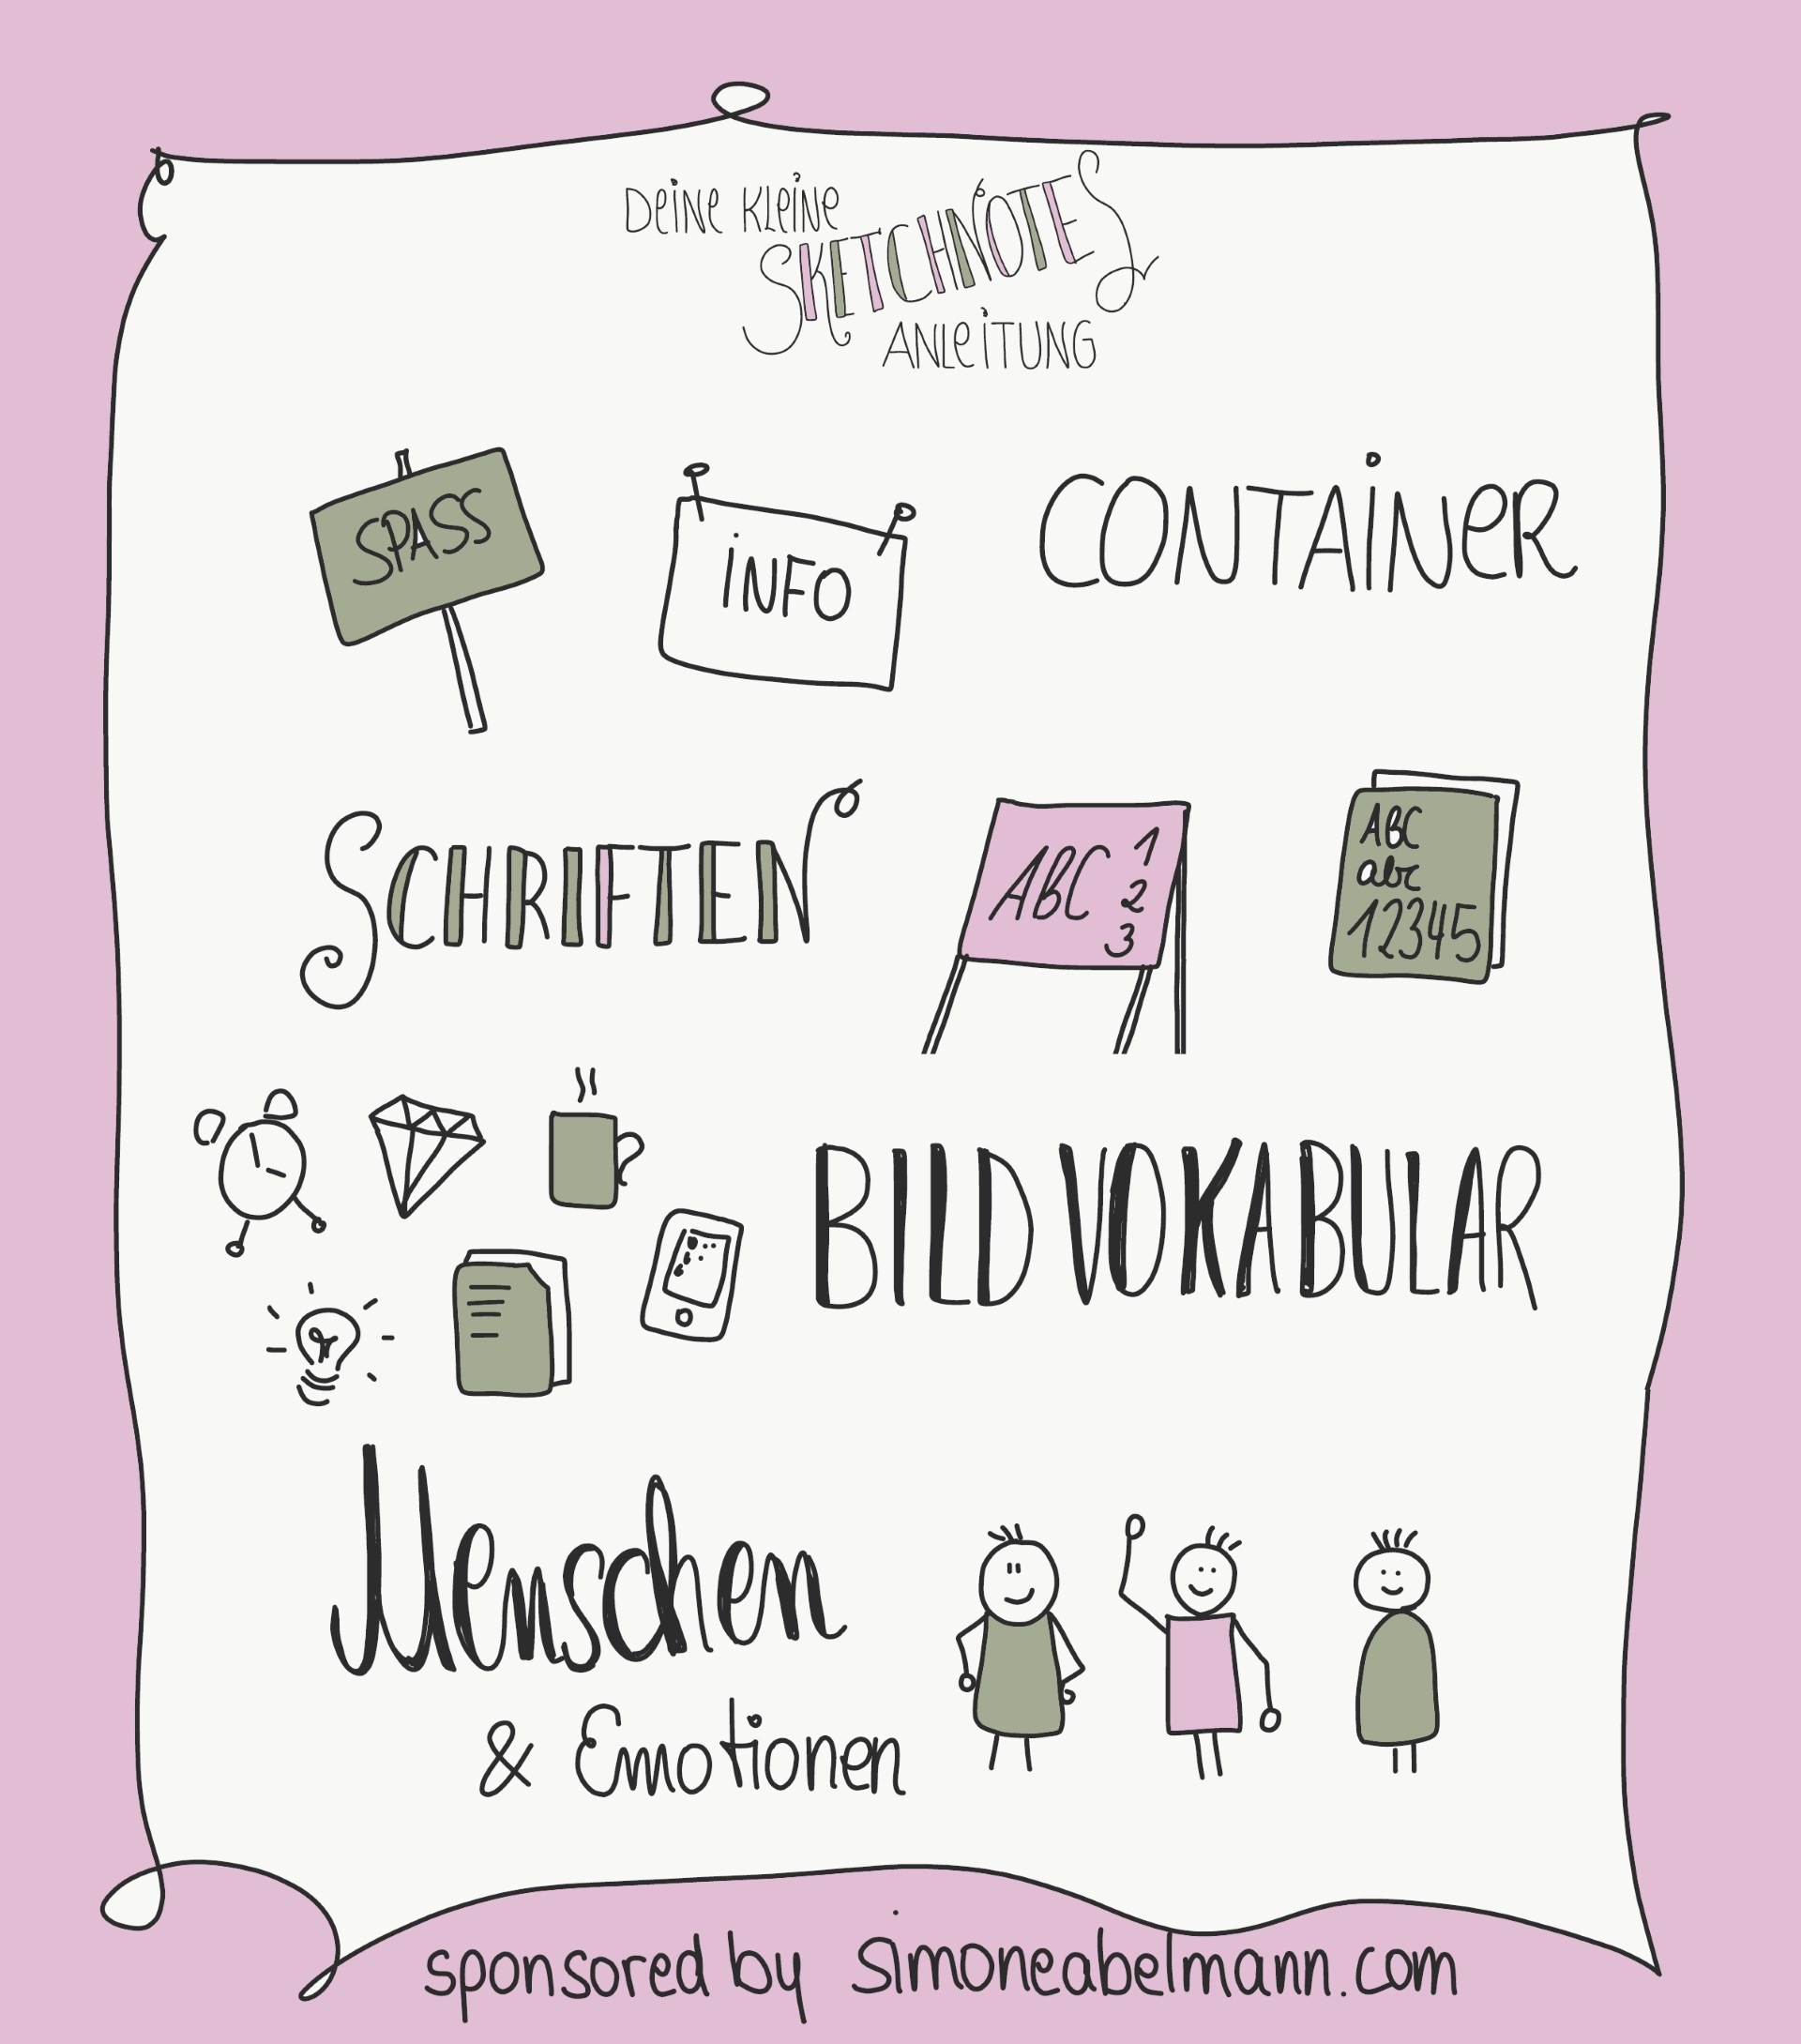 Deine kleine
SKETCHNOTES
ANLEITUNG
SPASS
INFO
CONTAINER
SCHRIFTEN
ABC 1
2
3
ABC
abc
12345
BILDVOKABULAR
Menschen
& Emotionen
sponsored by simoneabelmann.com